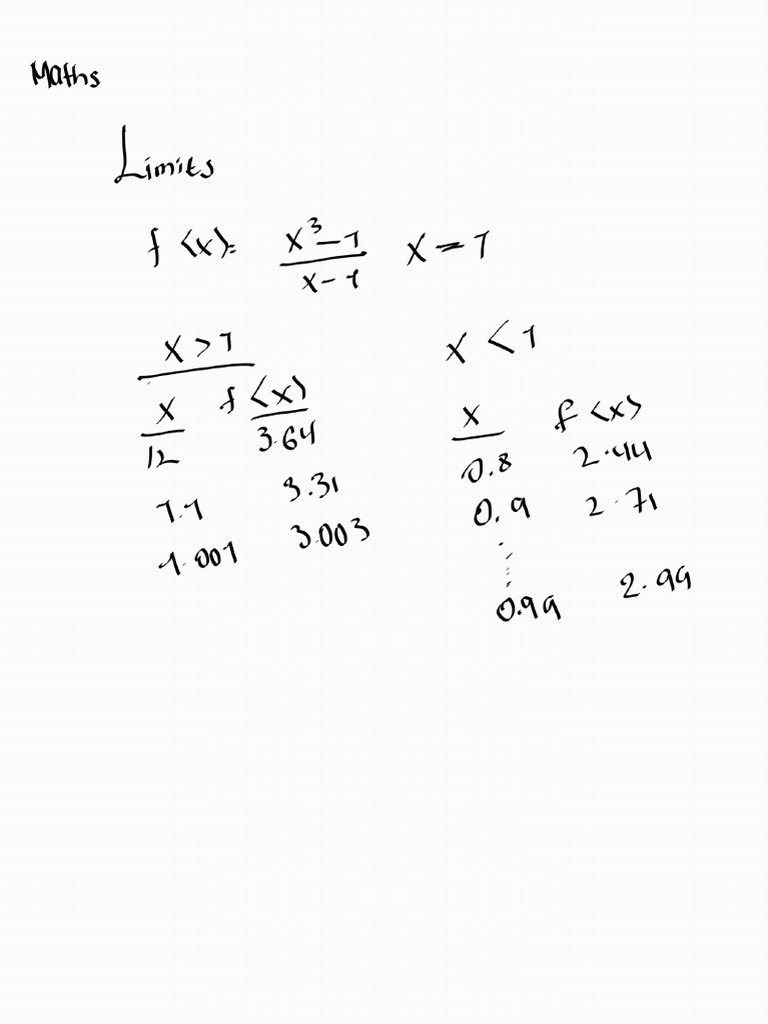 Maths
Limits
f(x)= x³-1 / x-1 x=1
x>1
x f(x)
12 3.64
1.1 3.31
1.001 3.003
x<1
x f(x)
0.8 2.44
0.9 2.71
⋮
0.99 2.99